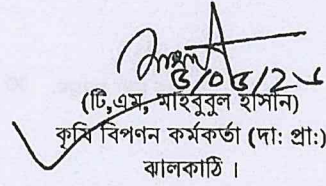 ৪/০৫/২৬
(টি,এম, মাহবুবুল হাসান)
কৃষি বিপণন কর্মকর্তা (দা: প্রা:)
ঝালকাঠি ।